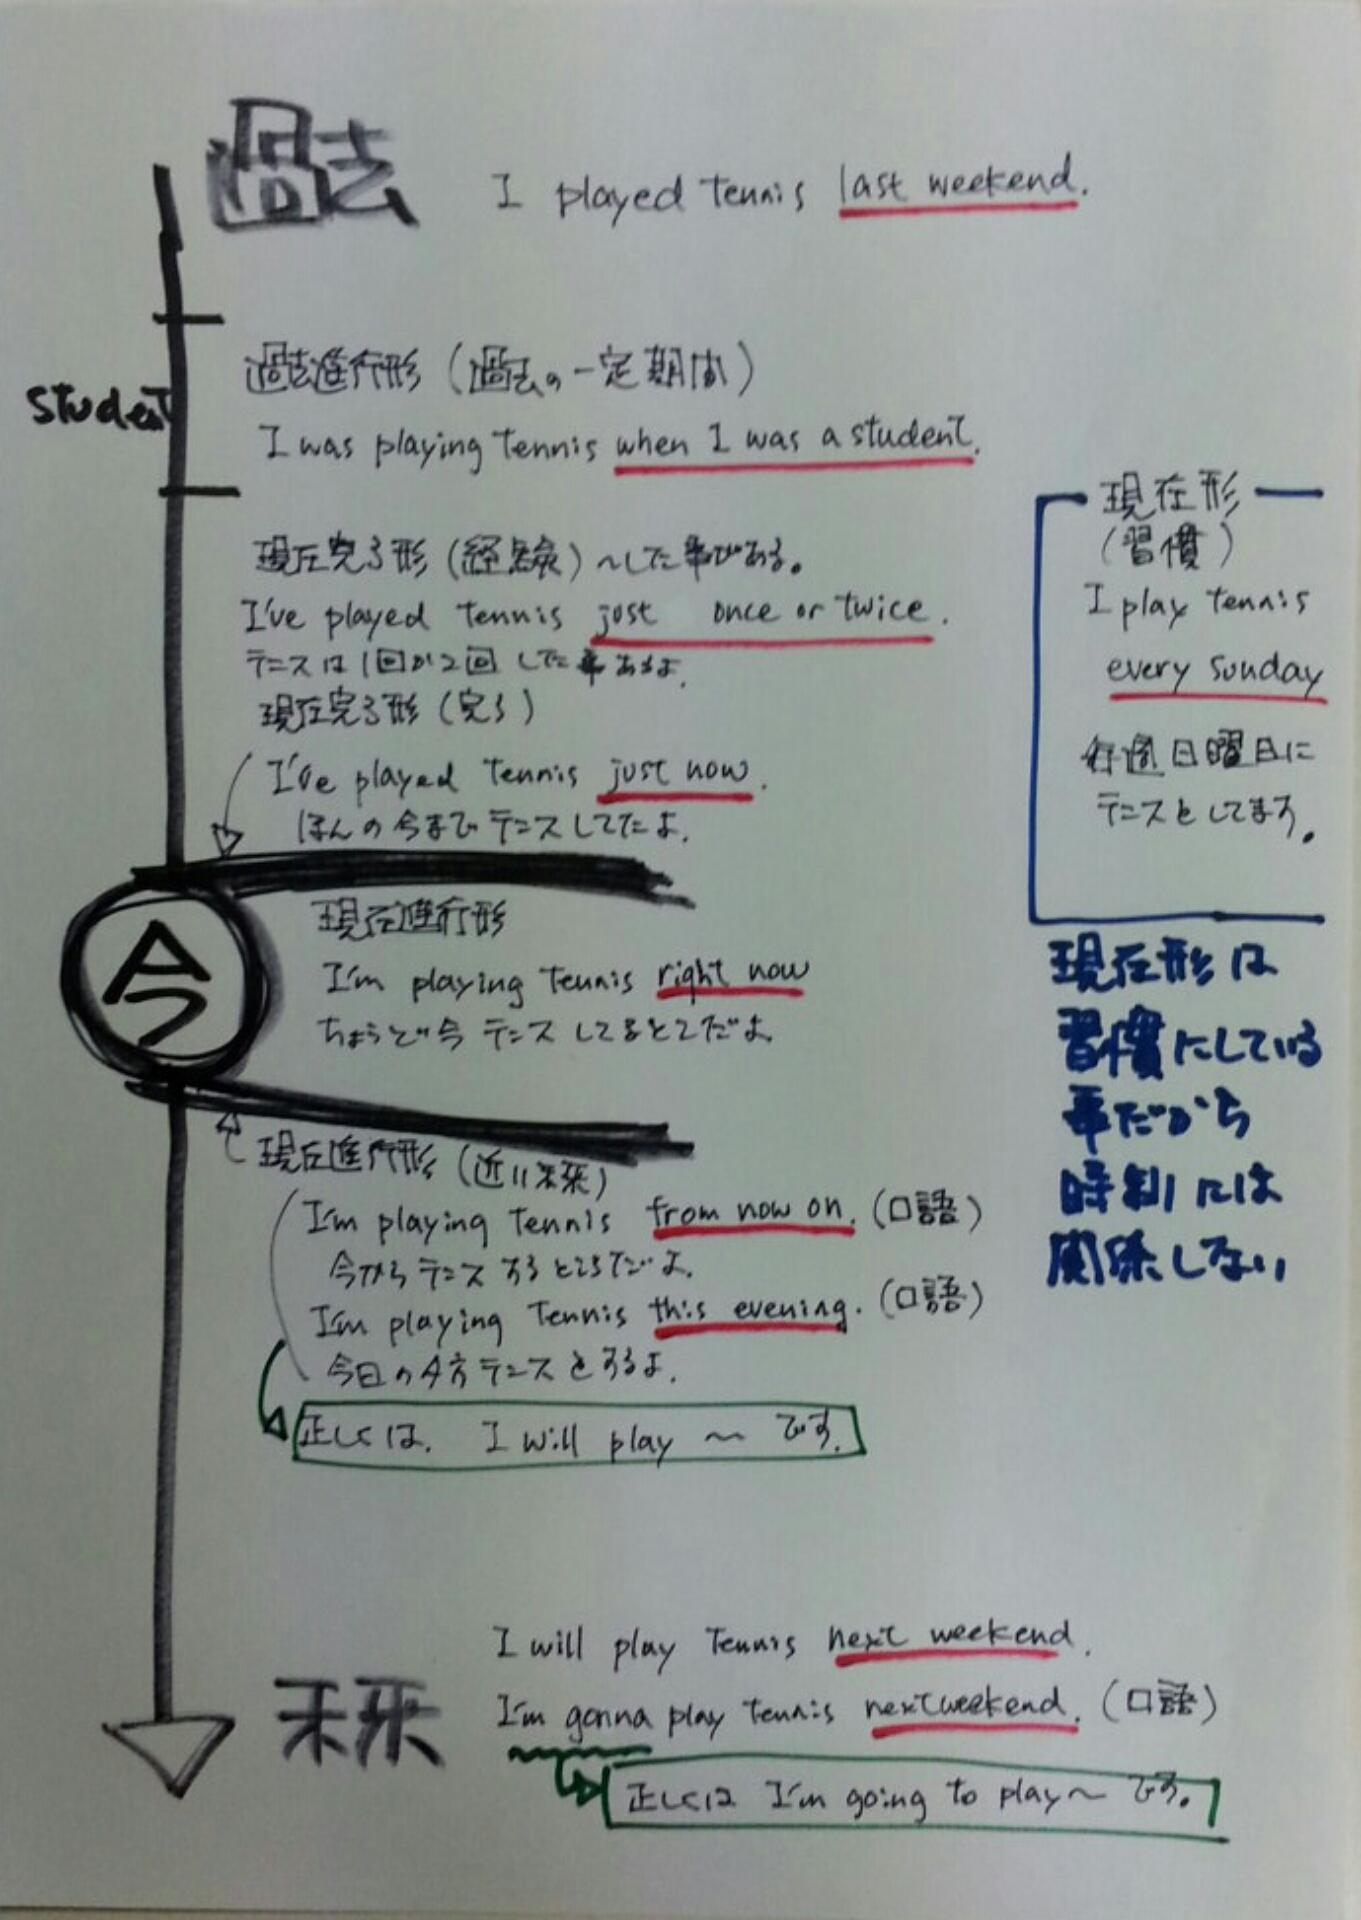 過去
I played tennis last weekend.
student
過去進行形（過去の一定期間）
I was playing tennis when I was a student.
現在完了形（経験）〜した事がある。
I've played tennis just once or twice.
テニスは1回か2回した事あるよ.
現在完了形（完了）
I've played tennis just now.
ほんの今までテニスしてたよ.
今
現在進行形
I'm playing tennis right now
ちょうど今テニスしてるとこだよ.
現在進行形（近い未来）
I'm playing tennis from now on.（口語）
今からテニスするところだよ.
I'm playing tennis this evening.（口語）
今日の夕方テニスをするよ.
正しくは. I will play 〜 です.
I will play tennis next weekend.
未来
I'm gonna play tennis next weekend.（口語）
正しくは I'm going to play〜 です。
現在形
（習慣）
I play tennis
every sunday
毎週日曜日に
テニスをしてます。
現在形は
習慣にしている
事だから
時制には
関係しない